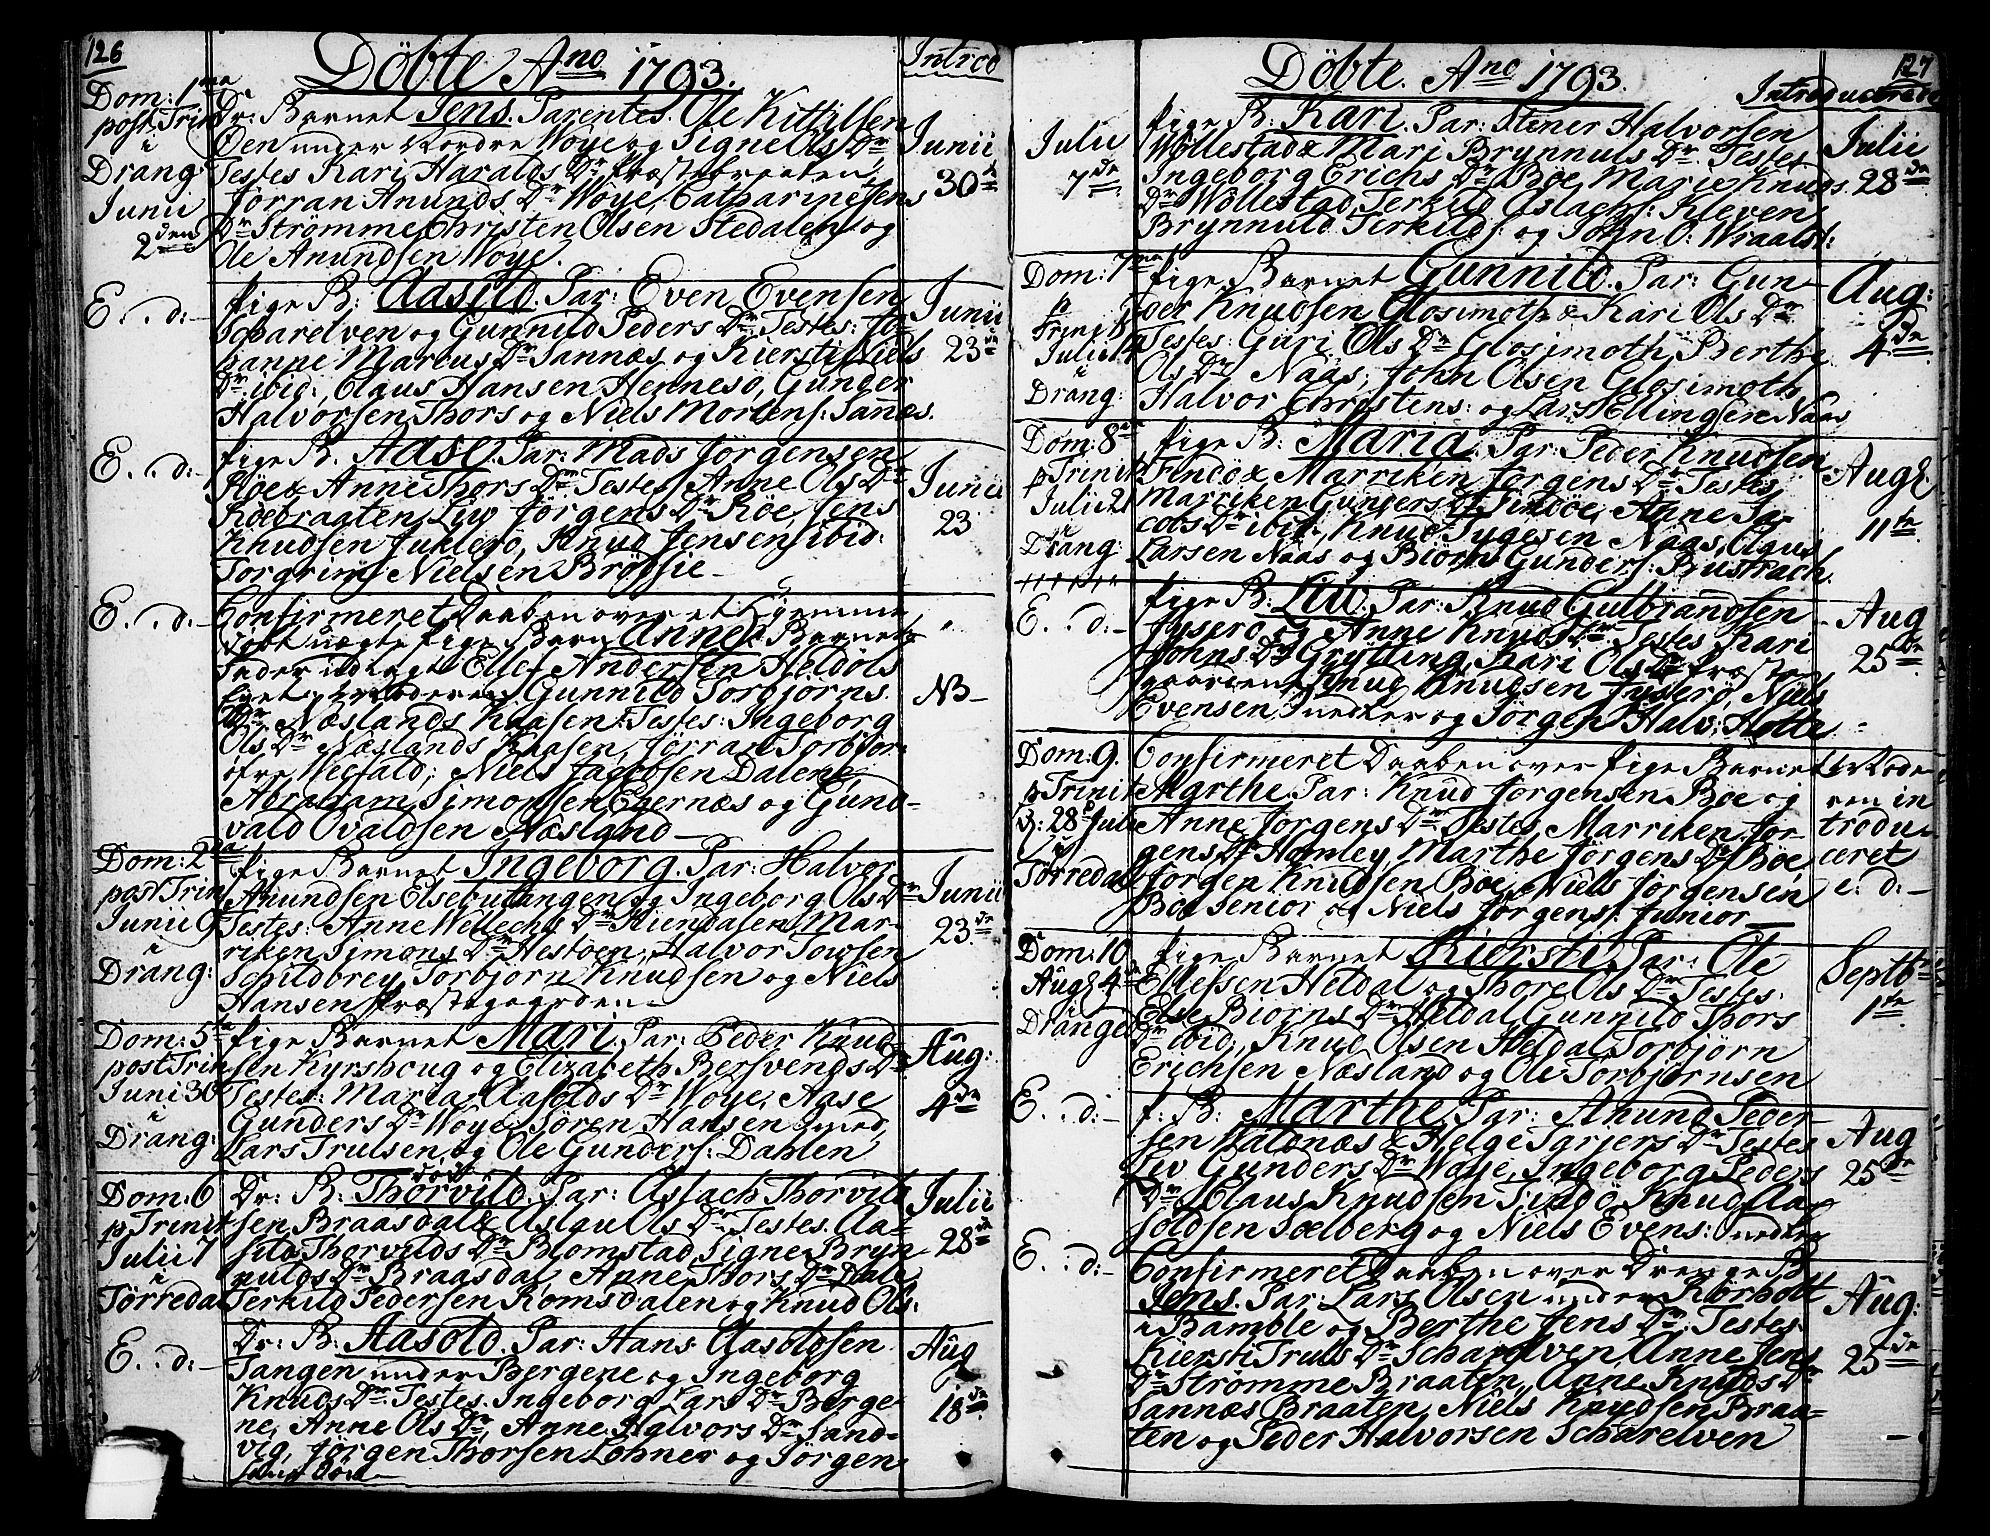 126
Döbte Ano 1793.
Introd
Dom: 1ma
post Trin
i
Drang:
Junii
2den
Dr: Barnet Jens. Parentes. Ole Kittilsen
Öen under Nordre Woye og Signe Ols Dr
Testes Kari Haralds Dr Præstebraaten
Jorran Anunds Dr Woye, Catharine Jens
Dr Strømme, Christen Olsen Stedalen og
Ole Anundsen Woye.
Junii
30te
E. . d:-
Pige B: Aasild. Par: Even Evensen
Scharelven og Gunnild Peders Dr. Testes: Jo-
hanne Marcus Dr Sannæs, og Kiersti Niels
Dr ibid:, Claus Hansen Hennesö, Gunder
Halvorsen Thors og Niels Mortens: Sanes.
Junii
23de
E. . d:-
Pige B. Aase. Par: Mads Jörgensen
Röe & Anne Thors Dr Testes Anne Ols Dr
Röebraaten, Liv Jörgens Dr Röe, Jens
Knudsen Juklerö, Knud Jensen ibid:
Torgrim Nielsen Brössie
Junii
23
E. . d:-
Confirmeret Daaben over et Hjemme
döbt uægte Pige Barn Anne. Barnets
Fader udlagt Ellef Andersen Heldöls
Eyet, Moderen Gunnild Torbjørns
Dr Næslands Kaasen. Testes: Ingeborg
Ols Dr Næslands Kaasen, Jörran Torbjör
Wefald; Niels Jacobsen Dalene,
Abraham Simonsen Egernæs og Gund-
vald Ovaldsen Næsland
NB-
Dom: 2da
post Trin
Junii 9
i
Drang:
Pige Barnet Ingeborg. Par: Halvor
Anundsen Elsebutangen og Ingeborg Ols Dr
Testes. Anne Wellechs Dr Kiendalen, Mar-
riken Simons Dr Hestöen, Halvor Towsen
Schildbrey, Torbjörn Knudsen og Niels
Hansen Præstegaarden
Junii
23de
Dom: 5te
post Trin
Juni 30
i
Drang:
Pige Barnet Mari. Par: Peder Knud-
sen Kyrshoug og Elizabeth Bersvends Dr
Testes: Maria Aasolds Dr Woye, Aase
Gunders Dr Woye, Sören Hansen
Lars Trulsen og Ole Gunders: Dahlen
Aug:
4de
Dom: 6
p Trinit
Julii 7
i
Törredal
Dr: B: Thorvild. Par: Aslach Thorvild
sen Braasdal & Aslau Ols Dr Testes. Aa-
sild Thorvilds Dr Blomstad, Signe Bryn
nulds Dr Braasdal, Anne Thors Dr Dale
Terkild Pedersen Romsdalen og Knud Ols:
Julii
28de
E. . d:-
Dr: B: Aasold. Par: Hans Aasoldsen
Tangen under Bergene og Ingeborg
Knuds Dr. Testes. Ingeborg Lars Dr Berge-
ne, Anne Ols Dr, Anne Halvors Dr Sand-
vig, Jörgen Thorsen Lohner og Jörgen
Aug
18de
127
Döbte. Ano 1793.
Introducerede
Julii
7de
Pige B: Kari. Par: Stener Halvorsen
Wöllestad & Mari Brynnuls Dr. Testes
Ingeborg Erichs Dr Böe, Marie Knuds
Dr Wöllestad, Terkild Aslachs: Kleven,
Brynnuld Terkilds: og John O: Wraalst:
Julii
28de
Dom: 7ma
p
Trinit
Julii 14
i
Drang:
Pige Barnet Gunnild. Par: Gun-
der Knudsen Glosimoth & Kari Ols Dr
Testes: Guri Ols Dr Glosimoth, Berthe
Ols Dr Naas, John Olsen Glosimoth
Halvor Christens: og Lars Ellingsen Naas
Aug:
4de
Dom: 8
p Trinit
Julii 21
i
Drang:
Pige B: Maria. Par: Peder Knudsen
Findöe & Marriken Jörgens Dr Testes
Marriken Gunders Dr Findöe, Anne Ja-
cobs Dr ibid:, Knud Tygesen Naas, Ogus
Larsen Naas og Biorn Gunders: Bustrach
Aug
11te
E. . d:-
Pige B: Liv. Par: Knud Gulbrandsen
Fyserö og Anne Knuds Dr Testes Kari
Johns Dr Grytting, Kari Ols Dr Præste
gaarden, Knud Knudsen Fyserö, Niels
Evensen Snedker og Jörgen Halv: Holte
Aug
25de
Dom: 9.
p Trinit
D: 28 Juli
i
Törredal
Confirmeret Daaben over Pige Barnet
Marthe. Par: Knud Jörgensen Böe og
Anne Jörgens Dr Testes, Marriken Jör-
gens Dr Homley, Marthe Jörgens Dr Böe,
Jörgen Knudsen Böe, Niels Jörgensen
Böe Senior og Niels Jörgens: Junior
Mode
ren in
trodu-
ceret
e. d:-
Dom: 10
Aug 4de
i
Dranged
Pige Barnet Kiersti. Par: Ole
Ellefsen Heldal og Thore Ols Dr Testes.
Else Biorns Dr Heldal, Gunnild Thors
Dr ibid:, Knud Olsen Heldal, Torbjörn
Erichsen Næsland og Ole Torbjørnsen
Septb
1te
E. . d:-
P: B: Marthe. Par: Anund Peder-
sen Waldnæs & Helge Tarjers Dr Testes
Liv Gunders Dr Woye, Ingeborg Peders
Dr Claus Knudsen Findö, Knud Aa-
soldsen Soelberg og Niels Evens: Snedker
Aug
25de
E. . d:-
Confirmeret Daaben over Drenge B
Jens. Par: Lars Olsen under Rörholt
i Bamble og Berthe Jens Dr. Testes.
Kiersti Truls Dr Scharelven, Anne Jens
Dr Strömme Braaten, Anne Knuds Dr
Sannæs Braaten, Niels Knudsen Braa-
ten og Peder Halvorsen Scharelven
Aug:
25de